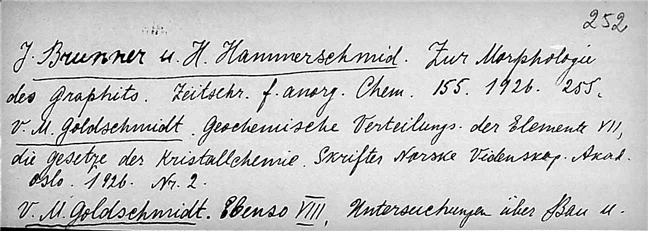 252
J. Brunner u. H. Hammerschmid. Zur Morphologie
des Graphits. Zeitschr. f. anorg. Chem. 155. 1926. 255.
V. M. Goldschmidt. Geochemische Verteilungs. der Elemente VII,
die Gesetze der Kristallchemie. Skrifter Norske Videnskap. Akad.
Oslo. 1926. Nr. 2.
V. M. Goldschmidt. Ebenso VIII, Untersuchungen über Bau u.